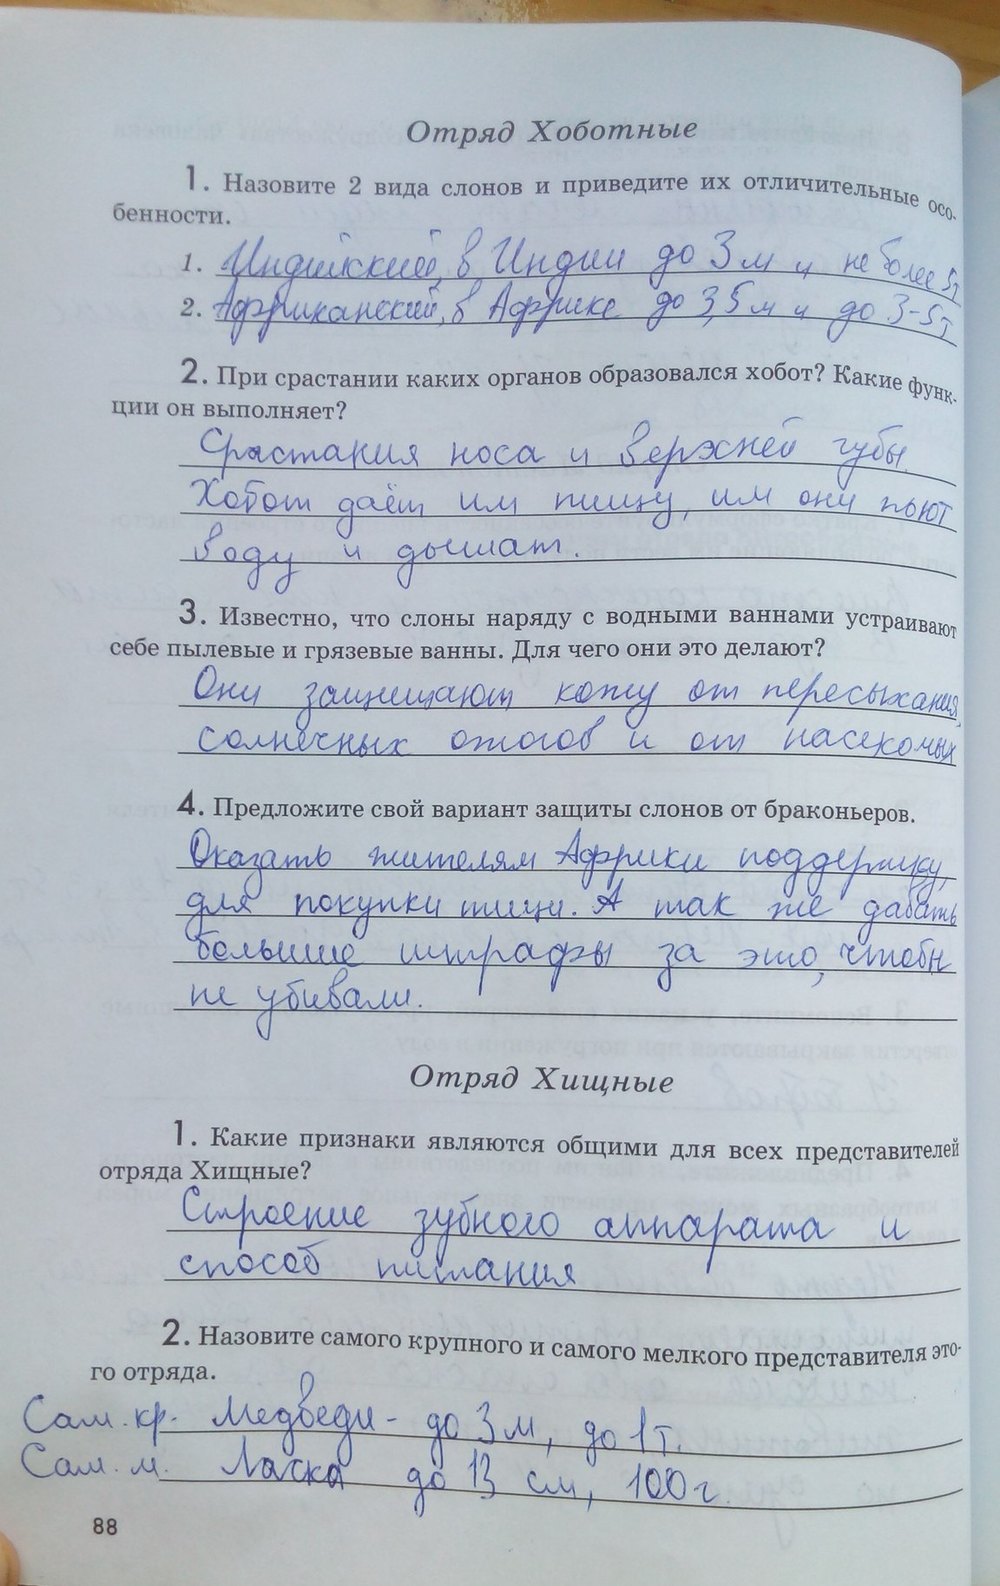 Отряд Хоботные
1. Назовите 2 вида слонов и приведите их отличительные осо-
бенности.
1. Индийский, в Индии до 3 м и не более 5т
2. Африканский, в Африке до 3,5 м и до 3-5т
2. При срастании каких органов образовался хобот? Какие функ-
ции он выполняет?
Срастания носа и верхней губы
Хобот даёт им пищу, им они пьют
воду и дышат.
3. Известно, что слоны наряду с водными ваннами устраивают
себе пылевые и грязевые ванны. Для чего они это делают?
Они защищают кожу от пересыхания,
солнечных ожогов и от насекомых
4. Предложите свой вариант защиты слонов от браконьеров.
Оказать жителям Африки поддержку,
для покупки пищи. А так же давать
большие штрафы за это, чтобы
не убивали.
Отряд Хищные
1. Какие признаки являются общими для всех представителей
отряда Хищные?
Строение зубного аппарата и
способ питания
2. Назовите самого крупного и самого мелкого представителя это-
го отряда.
Сам. кр. Медведи - до 3 м, до 1 т.
Сам. м. Ласка до 13 см, 100 г.
88